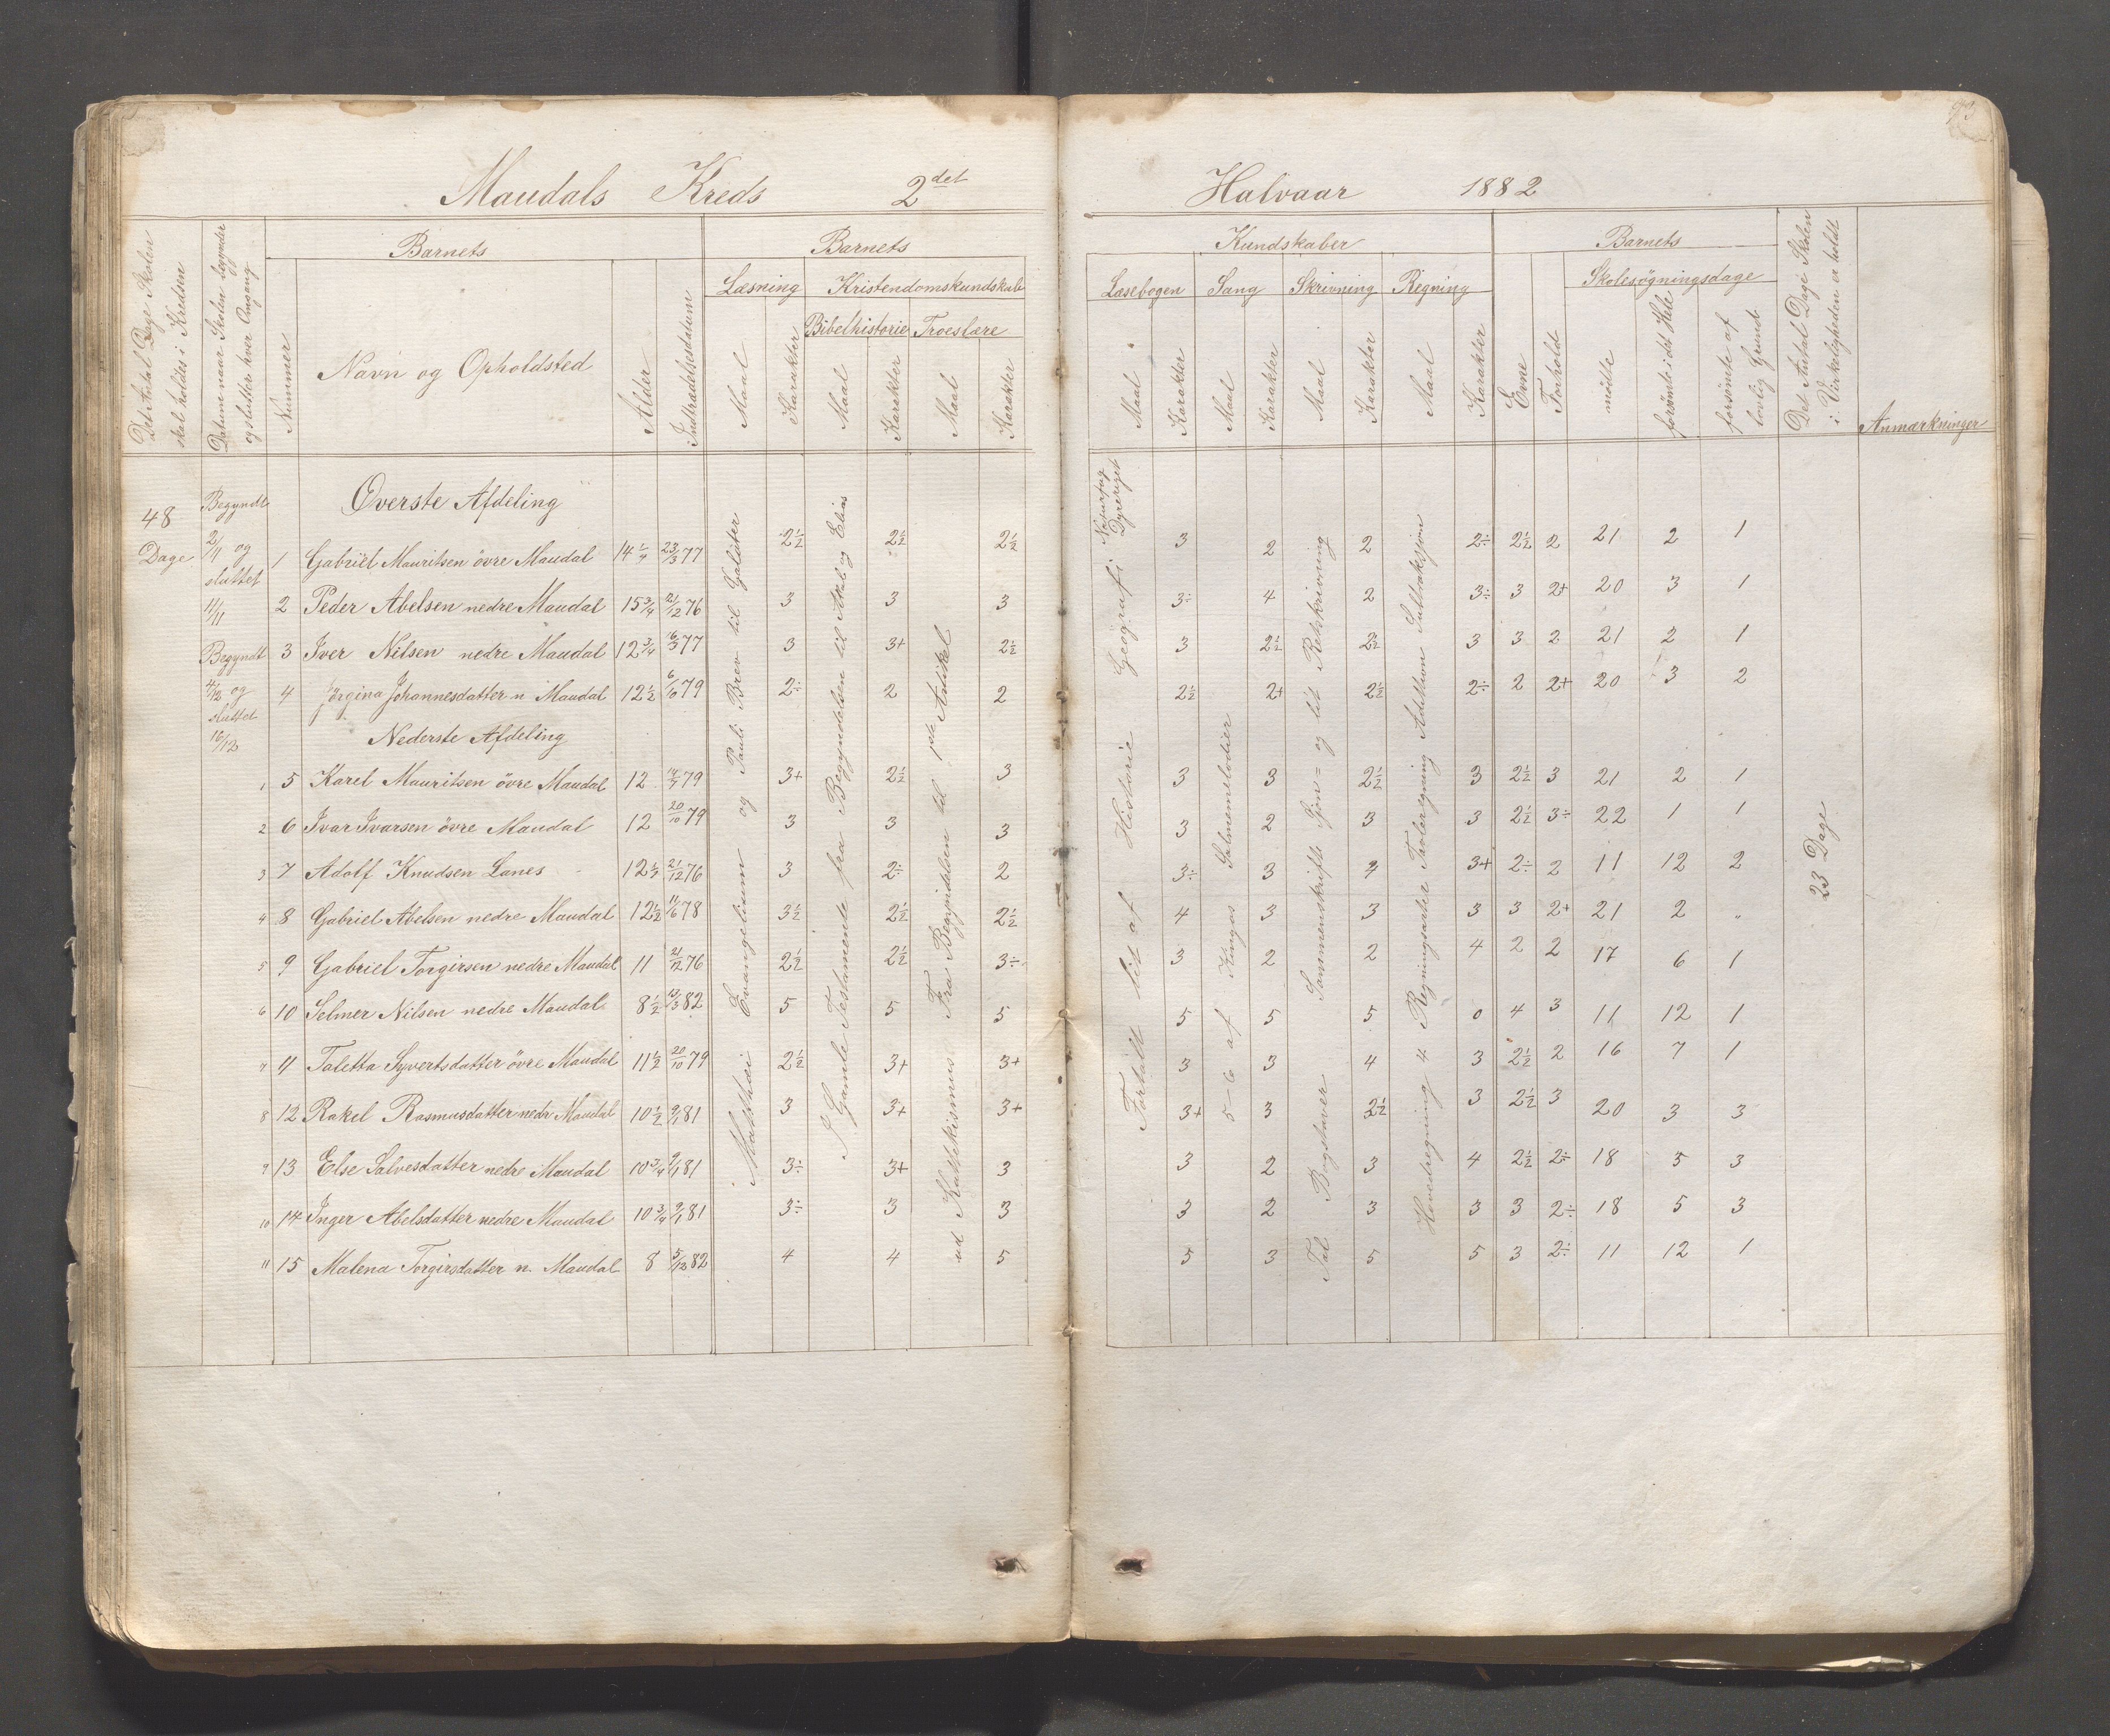 93
Maudals Kreds 2det Halvaar 1882
Det Antal Dage Skolen skal holdes i Kredsen
Datum naar Skolen begynder og slutter hver Omgang
Barnets
Nummer
Navn og Opholdsted
Alder
Indtrædelsesdatum
Barnets
Læsning
Maal
Karakter
Kristendomskundskab
Bibelhistorie
Maal
Karakter
Troeslære
Maal
Karakter
Kundskaber
Læsebogen
Maal
Karakter
Sang
Maal
Karakter
Skrivning
Maal
Karakter
Regning
Maal
Karakter
Barnets
Evne
Forhold
Skolesøgningsdage
mødte
forsømte i det Hele
forsømte af lovlig Grund
Det Antal Dage Skolen i Virkeligheden er holdt
Anmærkninger
48 Dage
Begyndte 2/11 og sluttet 11/11
Begyndt 4/12 og sluttet 16/12
Matthæi Evangelium og Pauli Brev til Galater
I Gamle Testamente fra Begyndelsen til Akab og Elias
Fra Begyndelsen til 1ste Artikel ud Kattekismus
Fortalt lit af Historie Geografi Naturfag Dyreriget
5-6 af Kingos Salmemelodier
Tal Bogstaver Sammenskrift Skjøn= og lit Retskrivning
Hovedregning 4 Regningsarter Tavleregning Addition Subtraksjon
23 Dage
Øverste Afdeling
1 Gabriel Mauritsen övre Maudal 14 1/4 23/3 77 2½ 2½ 2½ 3 2 2 2÷ 2½ 2 21 2 1
2 Peder Abelsen nedre Maudal 15 3/4 21/12 76 3 3 3 3÷ 4 2 3÷ 3 2+ 20 3 1
3 Iver Nilsen nedre Maudal 12 3/4 16/3 77 3 3+ 2½ 3 2½ 2½ 3 3 2 21 2 1
4 Jörgina Johannesdatter n Maudal 12½ 6/10 79 2÷ 2 2 2½ 2+ 2½ 2÷ 2 2+ 20 3 2
Nederste Afdeling
1 5 Karel Mauritsen övre Maudal 12 79 3+ 2½ 3 3 3 2½ 3 2½ 3 21 2 1
2 6 Ivar Ivarsen övre Maudal 12 20/10 79 3 3 3 3 2 3 3 2½ 3÷ 22 1 1
3 7 Adolf Knudsen Lanes 12½ 21/12 76 3 2÷ 2 3÷ 3 4 3+ 2÷ 2 11 12 2
4 8 Gabriel Abelsen nedre Maudal 12½ 11/6 78 3½ 2½ 2½ 4 3 3 3 3 2+ 21 2 "
5 9 Gabriel Torgirsen nedre Maudal 11 21/12 76 2½ 2½ 3÷ 3 2 2 4 2 2 17 6 1
6 10 Selmer Nilsen nedre Maudal 8½ 13/3 82 5 5 5 5 5 5 0 4 3 11 12 1
7 11 Taletta Syvertsdatter övre Maudal 11½ 20/10 79 2½ 3+ 3+ 3 3 4 3 2½ 2 16 7 1
8 12 Rakel Rasmusdatter nedr Maudal 10½ 9/1 81 3 3+ 3+ 3+ 3 2½ 3 2½ 3 20 3 3
9 13 Else Salvesdatter nedre Maudal 10 3/4 9/1 81 3÷ 3+ 3 3 2 3 4 2½ 2÷ 18 5 3
10 14 Inger Abelsdatter nedre Maudal 10 3/4 9/1 81 3÷ 3 3 3 2 3 3 3 2÷ 18 5 3
11 15 Malena Torgirsdatter n. Maudal 8 5/12 82 4 4 5 5 3 5 5 3 2÷ 11 12 1